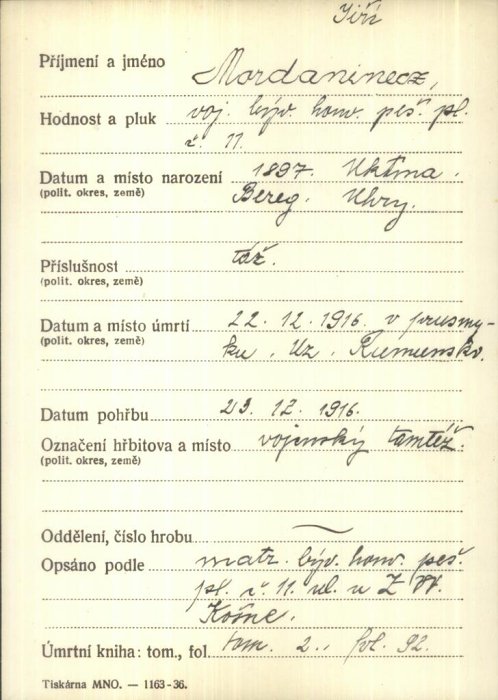 Jiří
Příjmení a jméno Mordaninecz,
Hodnost a pluk voj. býv. honv. peš. pl.
č. 11.
Datum a místo narození 1897. Uklina.
(polit. okres, země) Bereg. Uhry.
Příslušnost táž.
(polit. okres, země)
Datum a místo úmrtí 22. 12. 1916. v prusmy-
(polit. okres, země) ku. Uz. Rumunsko.
Datum pohřbu 23. 12. 1916.
Označení hřbitova a místo vojenský tamtéž.
(polit. okres, země)
Oddělení, číslo hrobu
Opsáno podle matr. býv. honv. peš.
pl. č. 11. ul. u Z. V.
Košice.
Úmrtní kniha: tom., fol. tom. 2., fol. 92.
Tiskárna MNO. — 1163-36.